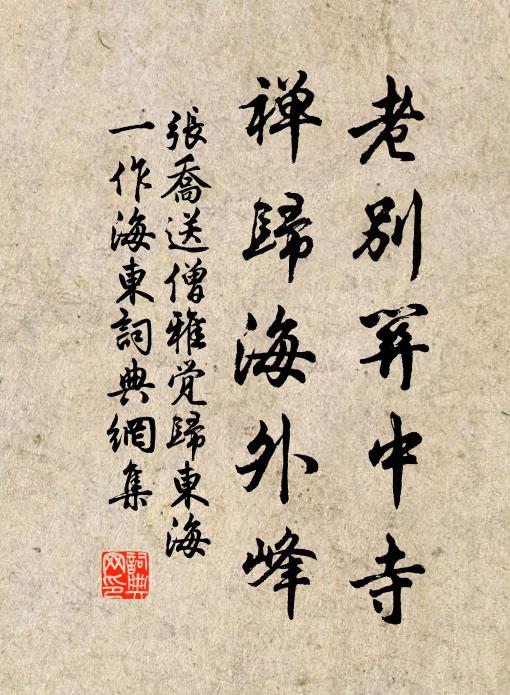 老別關中寺
禪歸海外峰
張喬送僧雅覺歸東海
一作海東詞典網集
詞典
网印